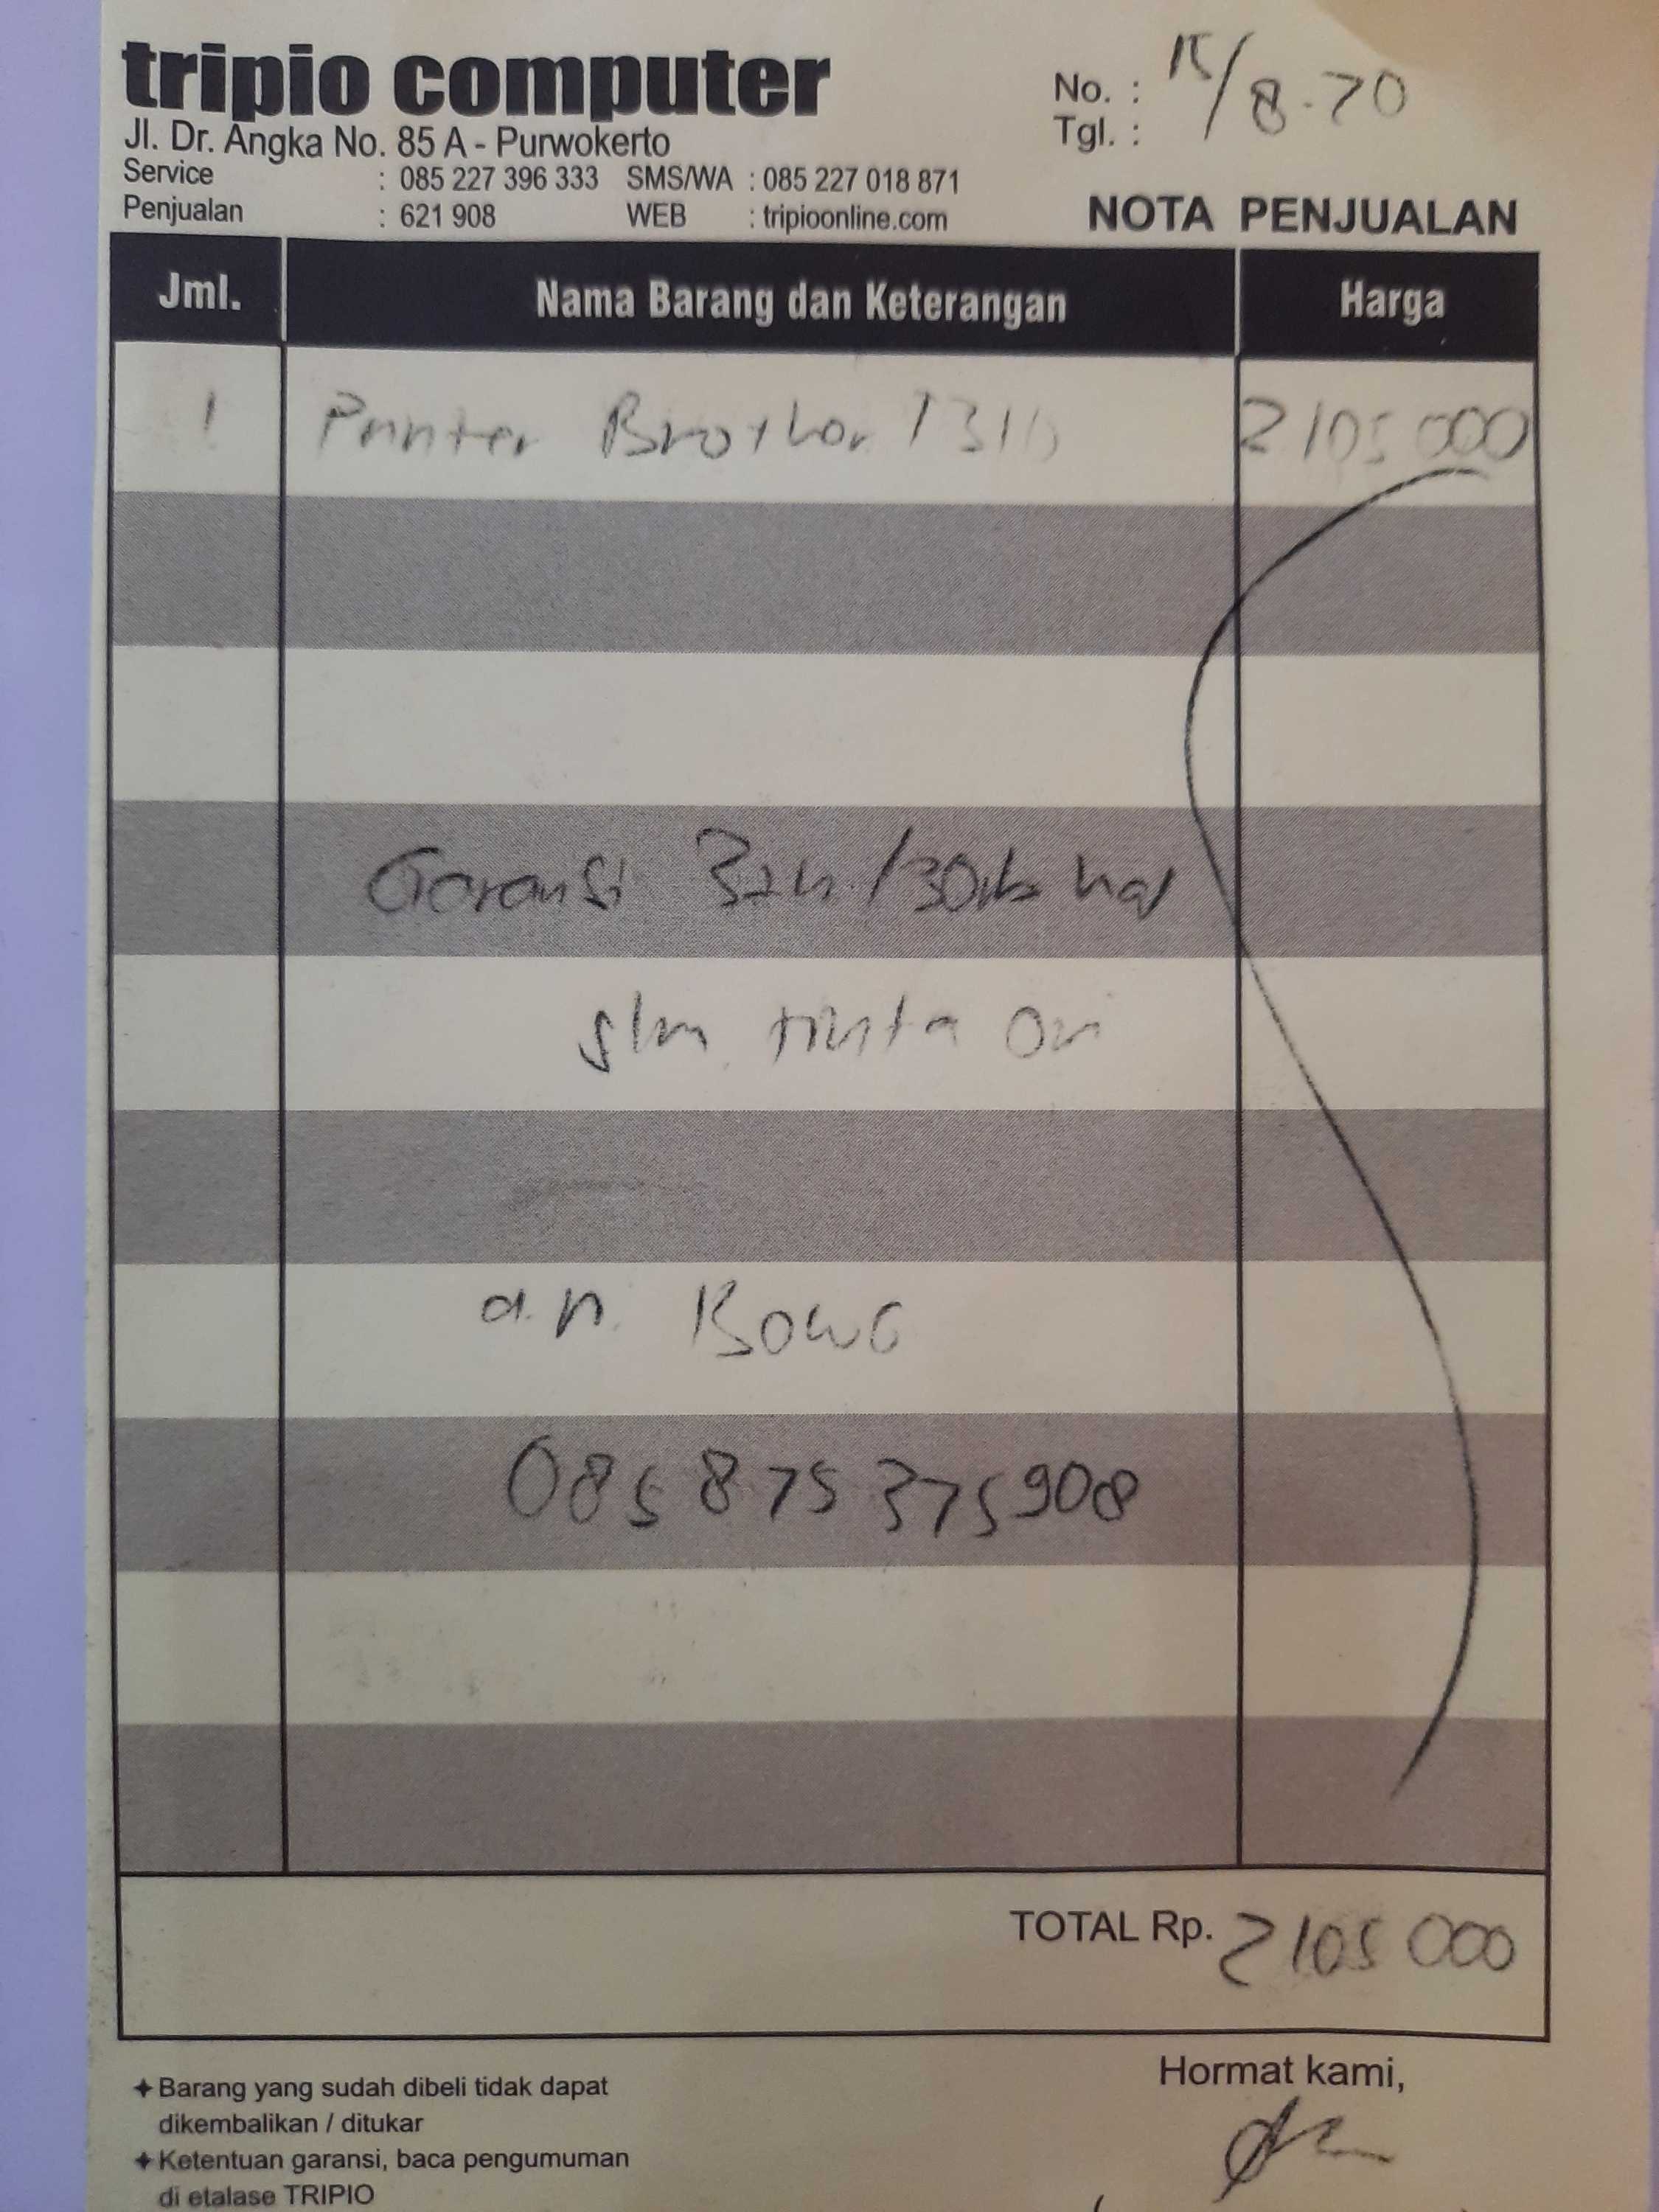 tripio computer
Jl. Dr. Angka No. 85 A - Purwokerto
Service : 085 227 396 333 SMS/WA : 085 227 018 871
Penjualan : 621 908 WEB : tripioonline.com
No. : 15/8-20
Tgl. :
NOTA PENJUALAN
Jml. Nama Barang dan Keterangan Harga
1 Printer Brother T310 2105 000
Garansi 3th/30rb hal
slm tinta ori
a.n. Bowo
085 875 375908
TOTAL Rp. 2105 000
✦ Barang yang sudah dibeli tidak dapat
dikembalikan / ditukar
✦ Ketentuan garansi, baca pengumuman
di etalase TRIPIO
Hormat kami,